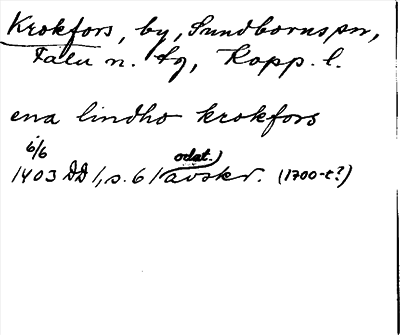 Krokfors, by, Sundborns sn,
Falu n. tg, Kopp. l.
ena lindho krokfors
6/6
1403 DD 1, s. 61 avskr. (1700-t?)
odat.)